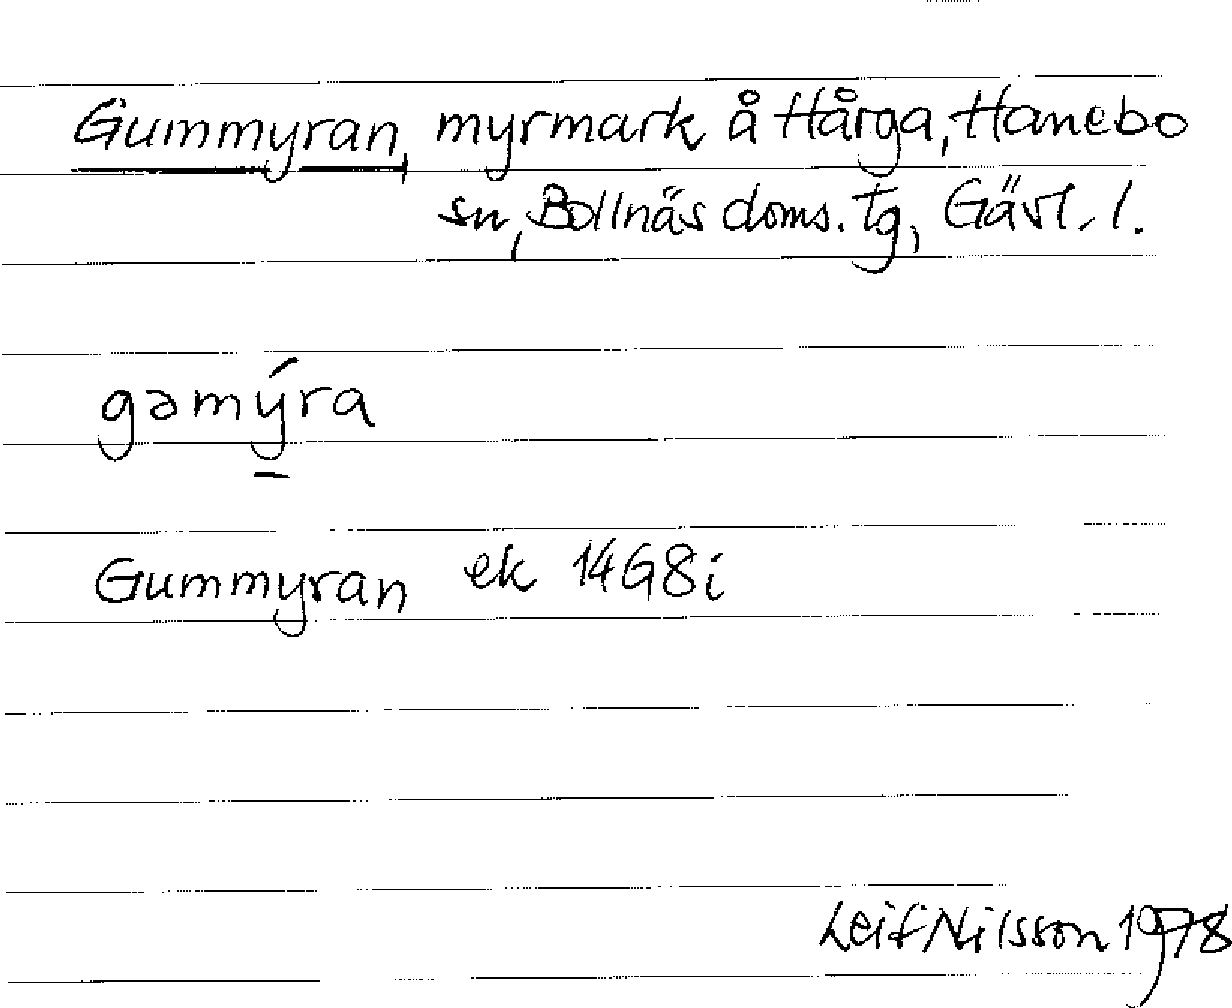 Gummyran, myrmark å Hårga, Hanebo
sn, Bollnäs doms. tg, Gävl. l.
gəmýra
Gummyran ek 14G8i
Leif Nilsson 1978